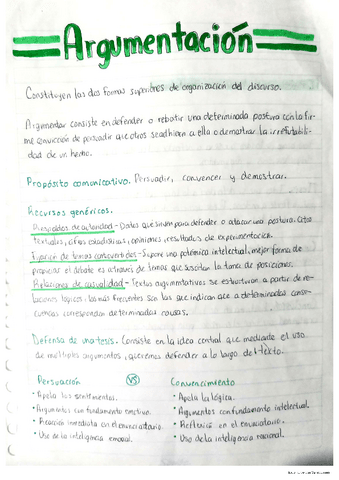 Argumentación
Constituyen las dos formas superiores de organización del discurso.
Argumentar consiste en defender o rebatir una determinada postura con la fir-
me convicción de persuadir que otros se adhieran a ella o demostrar la irrefutabili-
dad de un hecho.
Propósito comunicativo. Persuadir, convencer y demostrar.
Recursos genéricos.
Respaldos de autoridad - Datos que sirven para defender o atacar una postura. Citas
textuales, cifras estadísticas, opiniones, resultados de experimentación.
Fijación de temas controvertidos - Supone una polémica intelectual, mejor forma de
propiciar el debate es a través de temas que suscitan la toma de posiciones.
Relaciones de causalidad - Textos argumentativos se estructuran a partir de re-
laciones lógicas. Las más frecuentes son las que indican que a determinadas conse-
cuencias corresponden determinadas causas.
Defensa de una tesis. Consiste en la idea central que mediante el uso
de múltiples argumentos, queremos defender a lo largo del texto.
Persuación VS Convencimiento
• Apela los sentimientos. • Apela la lógica.
• Argumentos con fundamento emotivo. • Argumentos con fundamento intelectual.
• Reacción inmediata en el enunciatario. • Reflexión en el enunciatario.
• Uso de la inteligencia emocional. • Uso de la inteligencia racional.